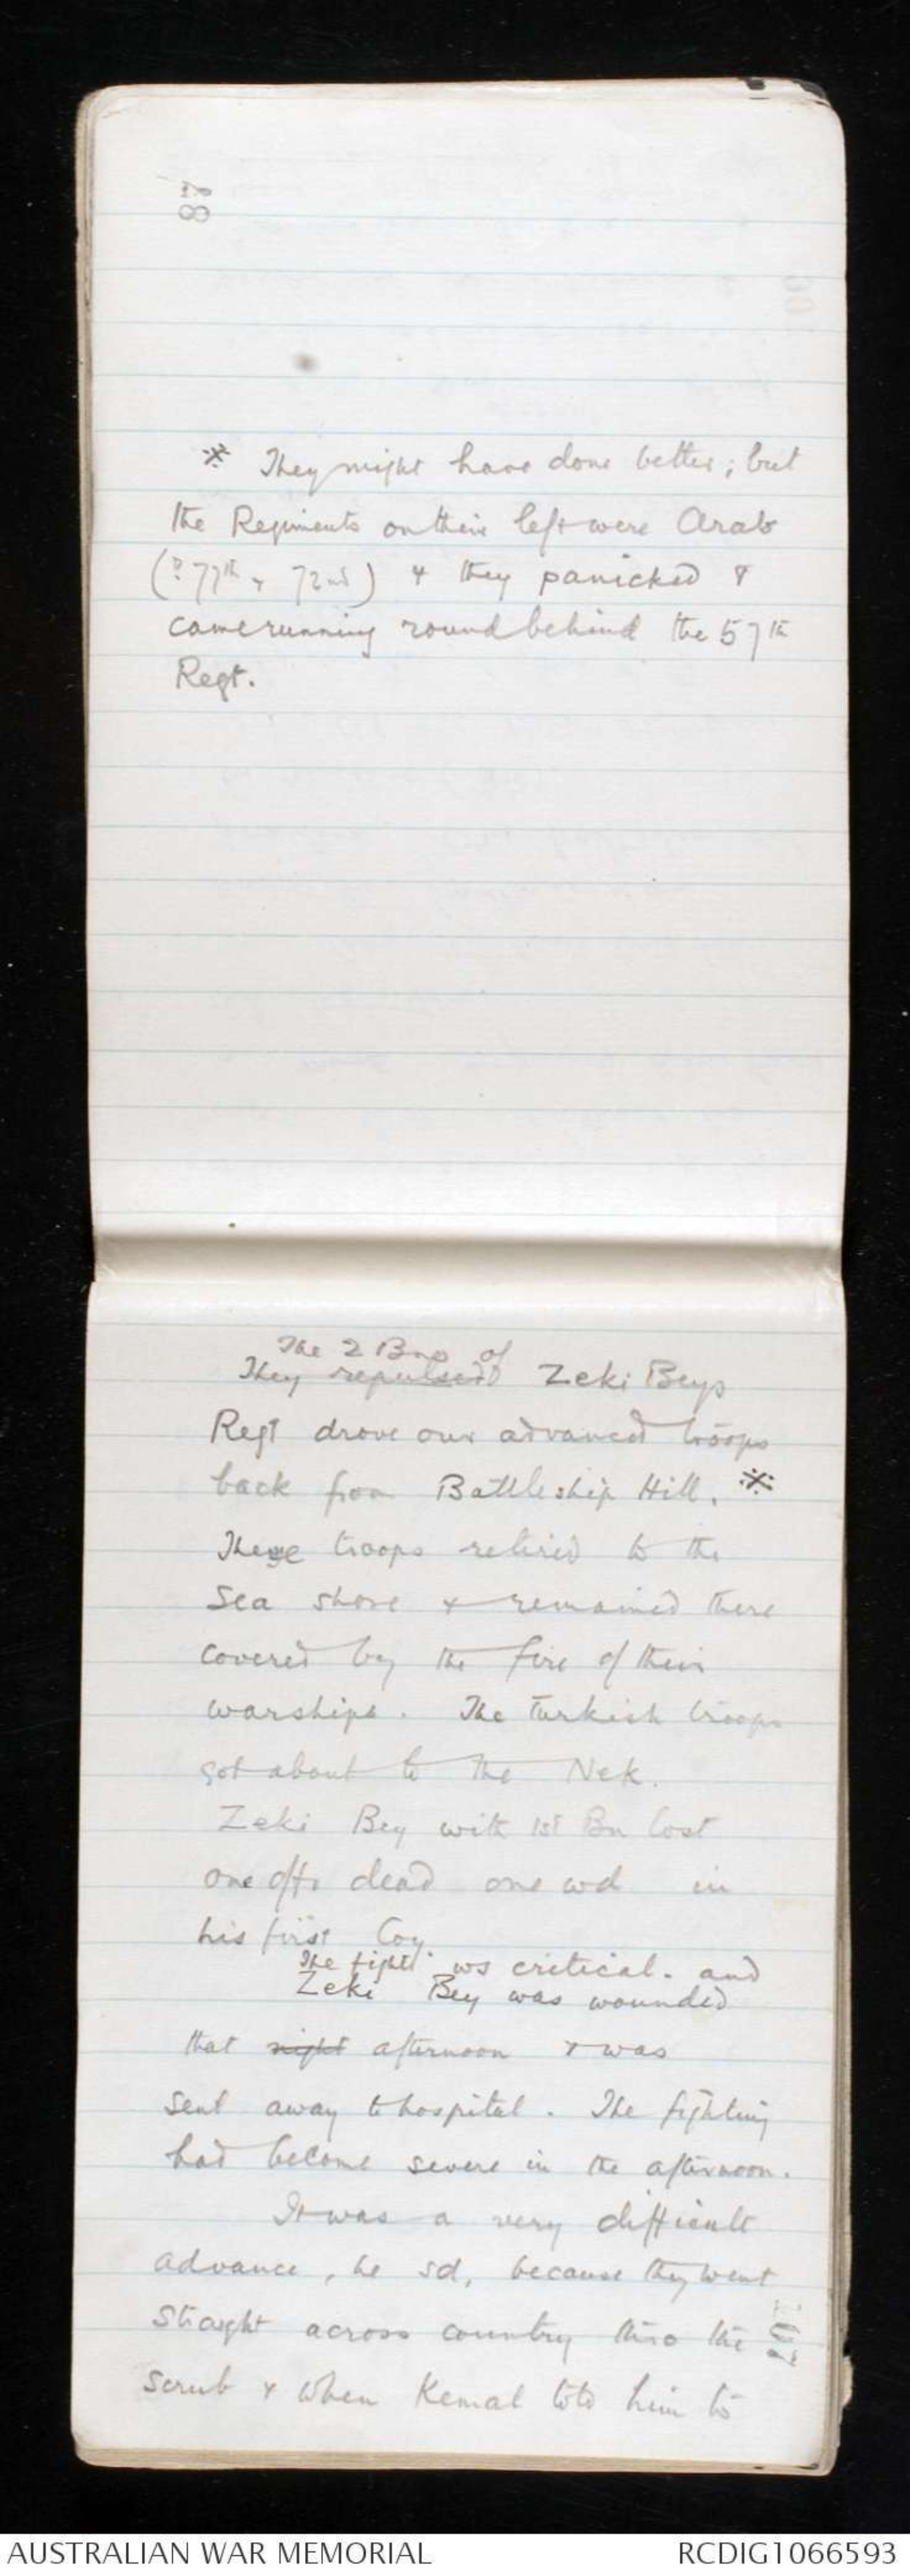 87
※ They might have done better; but
the Regiments on their left were Arab
(? 77th & 72nd) & they panicked &
came running round behind the 57th
Regt.
The 2 Bns of
They repulsed Zeki Beys
Regt drove our advanced troops
back from Battleship Hill. ※
These troops retired to the
sea shore & remained there
covered by the fire of their
warships. The Turkish troops
got about to the Nek.
Zeki Bey with 1st Bn lost
one offr dead one wd in
his first Coy.
The fight ws critical. and
Zeki Bey was wounded
that night afternoon & was
sent away to hospital. The fighting
had become severe in the afternoon.
It was a very difficult
advance, he sd, because they went
straight across country thro the
scrub & when Kemal told him to
AUSTRALIAN WAR MEMORIAL
RCDIG1066593